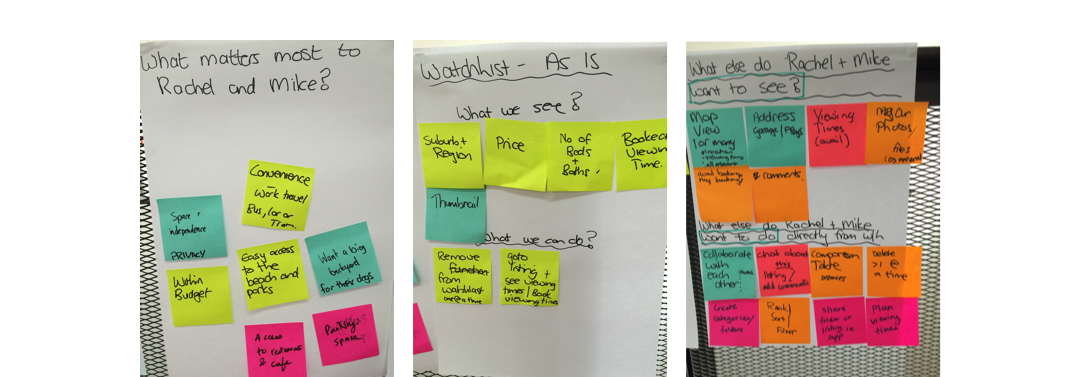 What matters most to
Rachel and Mike?
Convenience
–
Work travel
Bus, Car or
Tram.
Space +
independence
PRIVACY
Easy access
to the
beach and
parks
Want a big
backyard
for their dogs
Within
Budget
Access
to
& cafe
Parking
space
Watchlist - As Is
What we see?
Suburb +
Region
Price
No of
Beds
+
Baths.
Viewing
Time.
Thumbnail
What we can do?
Remove
from
watchlist
one @ a time
goto
listing +
see viewing
times / Book
viewing time
What else do Rachel + Mike
want to see?
Map
View
Address
Viewing
Times
(avail)
Photos
& comments.
What else do Rachel + Mike
want to do directly from w/h
Collaborate
with
each
other.
Chat about
this
listing /
add comments
Comparison
Table
Delete
>1 @
a time
Create
categories/
folders
Rank/
Sort/
Filter
Share
folder or
listing in
app
Plan
viewing
times